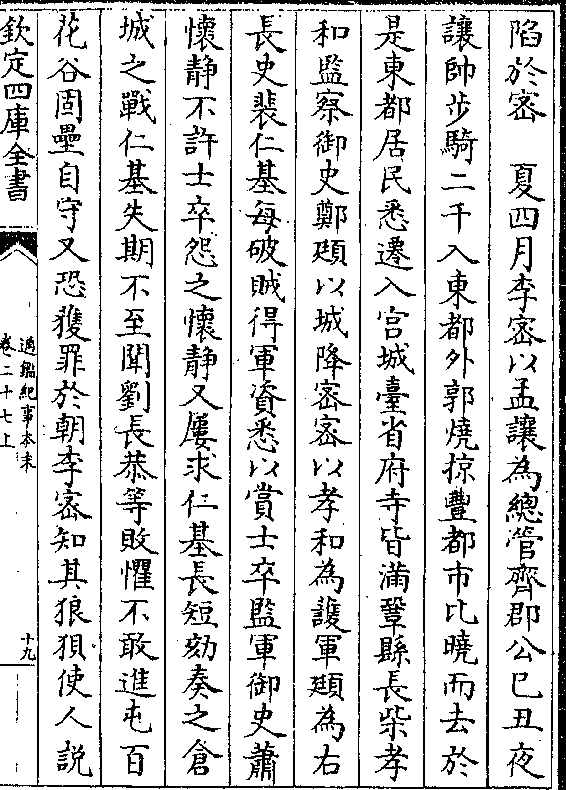 陷於密　夏四月李密以孟讓為總管齊郡公己丑夜
讓帥步騎二千入東都外郭燒掠豐都市比曉而去於
是東都居民悉遷入宮城臺省府寺皆滿鞏縣長柴孝
和監察御史鄭頲以城降密密以孝和為護軍頲為右
長史裴仁基每破賊得軍資悉以賞士卒監軍御史蕭
懷静不許士卒怨之懷静又屢求仁基長短劾奏之倉
城之戰仁基失期不至聞劉長恭等敗懼不敢進屯百
花谷固壘自守又恐獲罪於朝李密知其狼狽使人説
欽定四庫全書
通鑑紀事本末
卷二十七上
十九